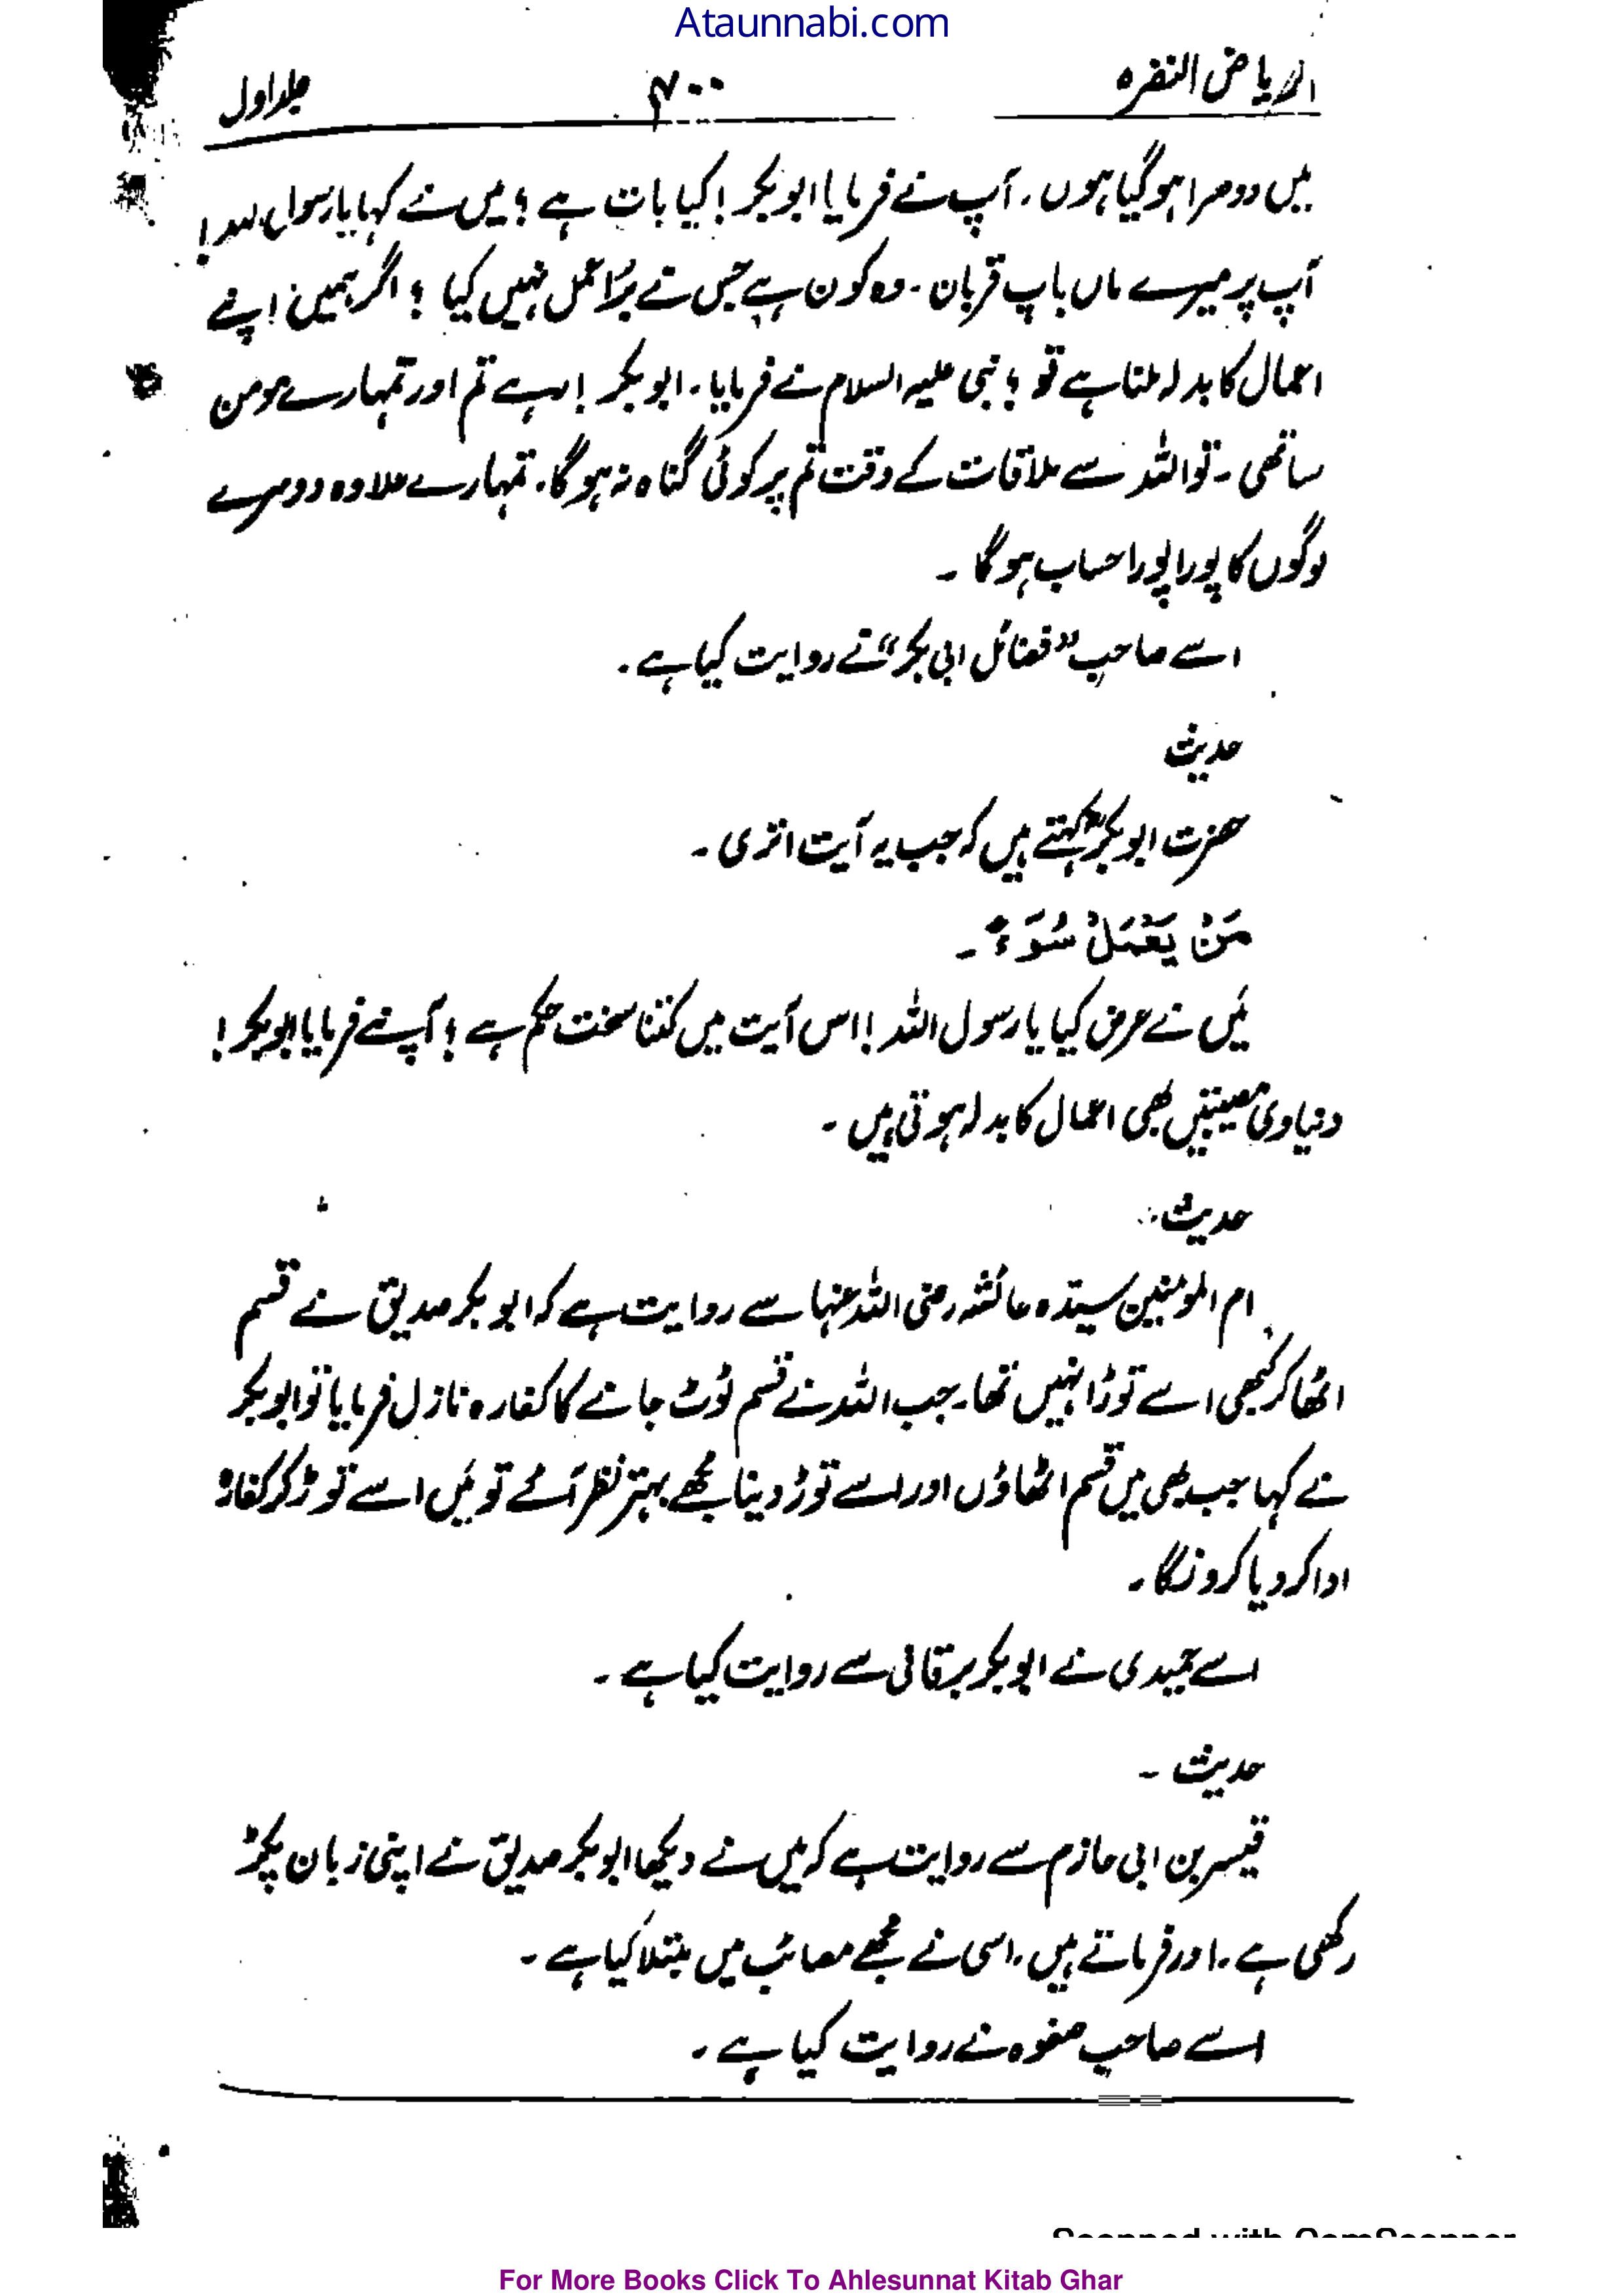 Ataunnabi.com
الریاض النضرہ ۴۰۰ جلد اول
میں دوہرا ہوگیا ہوں۔ آپ نے فرمایا ابوبکر! کیا بات ہے؟ میں نے کہا یا رسول اللہ!
آپ پر میرے ماں باپ قربان۔ وہ کون ہے جس نے بُرا عمل نہیں کیا؟ اگر ہمیں اپنے
اعمال کا بدلہ ملنا ہے تو؟ نبی علیہ السلام نے فرمایا۔ ابوبکر! رہے تم اور تمہارے مومن
ساتھی۔ تو اللہ سے ملاقات کے وقت تم پر کوئی گناہ نہ ہوگا۔ تمہارے علاوہ دوسرے
لوگوں کا پورا پورا حساب ہوگا۔
اسے صاحب "فضائل ابی بکر" نے روایت کیا ہے۔
حدیث
حضرت ابوبکرؓ کہتے ہیں کہ جب یہ آیت اتری۔
مَنْ یَعْمَلْ سُوَءً۔
مَیں نے عرض کیا یا رسول اللہ! اس آیت میں کتنا سخت حکم ہے؟ آپ نے فرمایا ابوبکر!
دنیاوی مصیبتیں بھی اعمال کا بدلہ ہوتی ہیں۔
حدیث۔
ام المؤمنین سیّدہ عائشہ رضی اللہ عنہا سے روایت ہے کہ ابوبکر صدیق نے قسم
اٹھا کر کبھی اسے توڑا نہیں تھا۔ جب اللہ نے قسم ٹوٹ جانے کا کفارہ نازل فرمایا تو ابوبکر
نے کہا جب بھی میں قسم اٹھاؤں اور اسے توڑ دینا مجھے بہتر نظر آئے تو مَیں اسے توڑ کر کفارہ
ادا کر دیا کرونگا۔
اسے حمیدی نے ابوبکر برقانی سے روایت کیا ہے۔
حدیث۔
قیسر بن ابی حازم سے روایت ہے کہ میں نے دیکھا ابوبکر صدیق نے اپنی زبان پکڑ
رکھی ہے۔ اور فرماتے ہیں۔ اسی نے مجھے مصائب میں مبتلا کیا ہے۔
اسے صاحب صفوہ نے روایت کیا ہے۔
Scanned with CamScanner
For More Books Click To Ahlesunnat Kitab Ghar